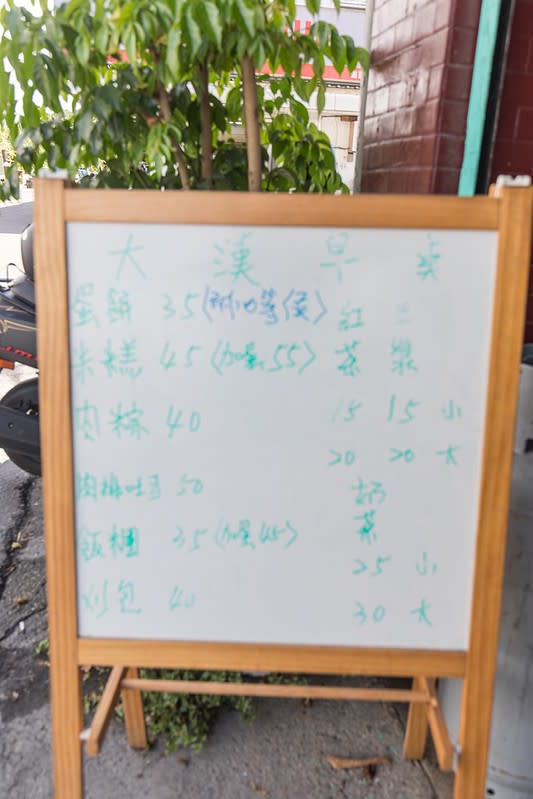 大漢早
蛋餅 35
米糕 45(加蛋55)
肉粽 40
肉排吐司 50
飯糰 35(加蛋45)
刈包 40
紅
茶
15 15 小
20 20 大
奶
茶
25 小
30 大